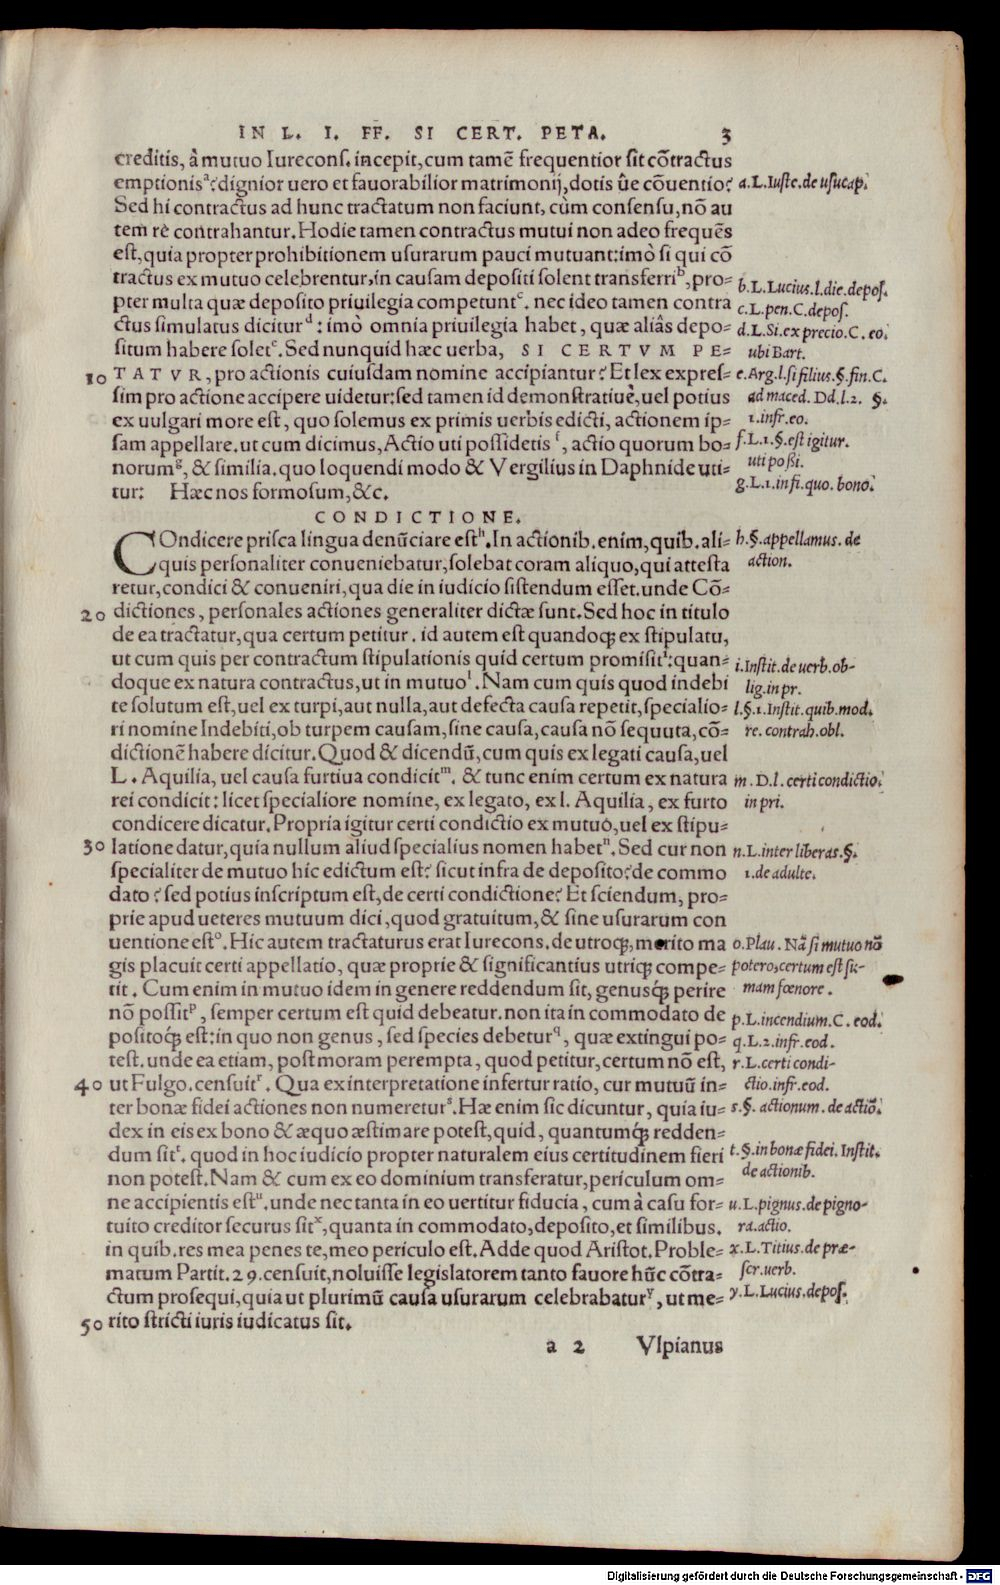 IN L. I. FF. SI CERT. PETA. 3
creditis, â mutuo Iurecons. incepit, cum tamē frequentior sit cōtractus
emptionisᵃ? dignior uero et fauorabilior matrimonij, dotis ûe cōuentio?
Sed hi contractus ad hunc tractatum non faciunt, cùm consensu, nō au
tem rè contrahantur. Hodie tamen contractus mutui non adeo frequēs
est, quia propter prohibitionem usurarum pauci mutuant: imò si qui cō
tractus ex mutuo celebrentur, in causam depositi solent transferriᵇ, pro-
pter multa quæ deposito priuilegia competuntᶜ. nec ideo tamen contra
ctus simulatus diciturᵈ: imò omnia priuilegia habet, quæ aliâs depo-
situm habere soletᵉ. Sed nunquid hæc uerba, SI CERTVM PE-
10 TATVR, pro actionis cuiusdam nomine accipiantur? Et lex expres-
sim pro actione accipere uidetur: sed tamen id demonstratiuè, uel potius
ex uulgari more est, quo solemus ex primis uerbis edicti, actionem ip-
sam appellare. ut cum dicimus, Actio uti possidetisᶠ, actio quorum bo-
norumᵍ, & similia. quo loquendi modo & Vergilius in Daphnide uti-
tur: Hæc nos formosum, &c.
CONDICTIONE.
COndicere prisca lingua denūciare estʰ. In actionib. enim, quib. ali-
quis personaliter conueniebatur, solebat coram aliquo, qui attesta
retur, condici & conueniri, qua die in iudicio sistendum esset. unde Cō-
20 dictiones, personales actiones generaliter dictæ sunt. Sed hoc in titulo
de ea tractatur, qua certum petitur. id autem est quandoq; ex stipulatu,
ut cum quis per contractum stipulationis quid certum promisitⁱ: quan-
doque ex natura contractus, ut in mutuoˡ. Nam cum quis quod indebi
te solutum est, uel ex turpi, aut nulla, aut defecta causa repetit, specialio-
ri nomine Indebiti, ob turpem causam, sine causa, causa nō sequuta, cō-
dictionē habere dicitur. Quod & dicendū, cum quis ex legati causa, uel
L. Aquilia, uel causa furtiua condicitᵐ. & tunc enim certum ex natura
rei condicit: licet specialiore nomine, ex legato, ex l. Aquilia, ex furto
condicere dicatur. Propria igitur certi condictio ex mutuo, uel ex stipu-
30 latione datur, quia nullum aliud specialius nomen habetⁿ. Sed cur non
specialiter de mutuo hic edictum est? sicut infra de deposito? de commo
dato? sed potius inscriptum est, de certi condictione? Et sciendum, pro-
prie apud ueteres mutuum dici, quod gratuitum, & sine usurarum con
uentione estᵒ. Hic autem tractaturus erat Iurecons. de utroq;, merito ma
gis placuit certi appellatio, quæ proprie & significantius utriq; compe-
tit. Cum enim in mutuo idem in genere reddendum sit, genusq́; perire
nō possitᵖ, semper certum est quid debeatur. non ita in commodato de
positoq́; est: in quo non genus, sed species debetur𐞥, quæ extingui po-
test. unde ea etiam, post moram perempta, quod petitur, certum nō est,
40 ut Fulgo. censuitʳ. Qua ex interpretatione infertur ratio, cur mutuū in-
ter bonæ fidei actiones non numereturˢ. Hæ enim sic dicuntur, quia iu-
dex in eis ex bono & æquo æstimare potest, quid, quantumq́; redden-
dum sitᵗ. quod in hoc iudicio propter naturalem eius certitudinem fieri
non potest. Nam & cum ex eo dominium transferatur, periculum om-
ne accipientis estᵘ. unde nec tanta in eo uertitur fiducia, cum à casu for-
tuito creditor securus sitˣ, quanta in commodato, deposito, et similibus.
in quib. res mea penes te, meo periculo est. Adde quod Aristot. Proble-
matum Partit. 29. censuit, noluisse legislatorem tanto fauore hūc cōtra-
ctum prosequi, quia ut plurimū causa usurarum celebrabaturʸ, ut me-
50 rito stricti iuris iudicatus sit.
a 2 Vlpianus
a. L. Iuste. de usucap.
b. L. Lucius. l. die. depos.
c. L. pen. C. depos.
d. L. Si. ex precio. C. eo.
ubi Bart.
e. Arg. l. si filius. §. fin. C.
ad maced. Dd. l. 2. §.
1. infr. eo.
f. L. 1. §. est igitur.
uti possi.
g. L. 1. in fi. quo. bono.
h. §. appellamus. de
action.
i. Instit. de uerb. ob-
lig. in pr.
l. §. 1. Instit. quib. mod.
re. contrah. obl.
m. D. l. certi condictio.
in pri.
n. L. inter liberas. §.
1. de adulte.
o. Plau. Nā si mutuo nō
potero, certum est su-
mam fœnore.
p. L. incendium. C. eod.
q. L. 2. infr. eod.
r. L. certi condi-
ctio. infr. eod.
s. §. actionum. de actiō.
t. §. in bonæ fidei. Instit.
de actionib.
u. L. pignus. de pigno-
ra. actio.
x. L. Titius. de præ-
scr. uerb.
y. L. Lucius. depos.
Digitalisierung gefördert durch die Deutsche Forschungsgemeinschaft - DFG